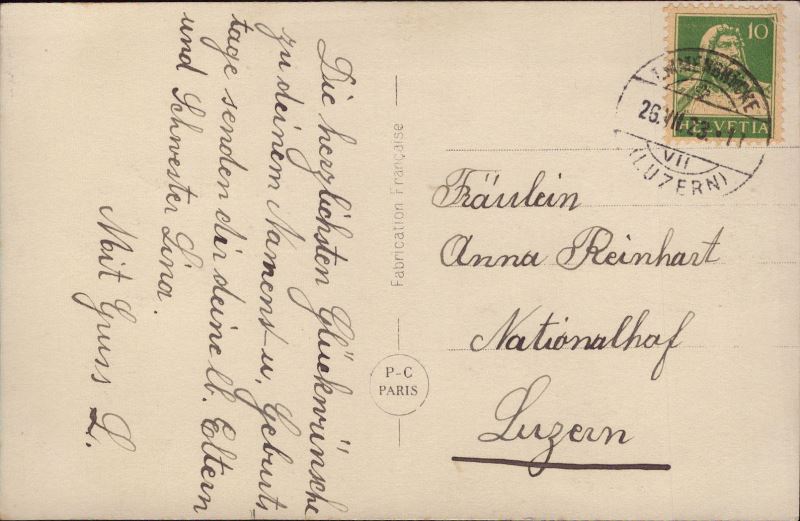 Die herzlichsten Glückwünsche
zu deinem Namens- u. Geburts
tage senden dir deine lb. Eltern
und Schwester Lina.
Mit Gruss L.
Fabrication Française
P-C
PARIS
10
HELVETIA
EMMENBRÜCKE
26.VII.23.
VII
(LUZERN)
Fräulein
Anna Reinhart
Nationalhof
Luzern